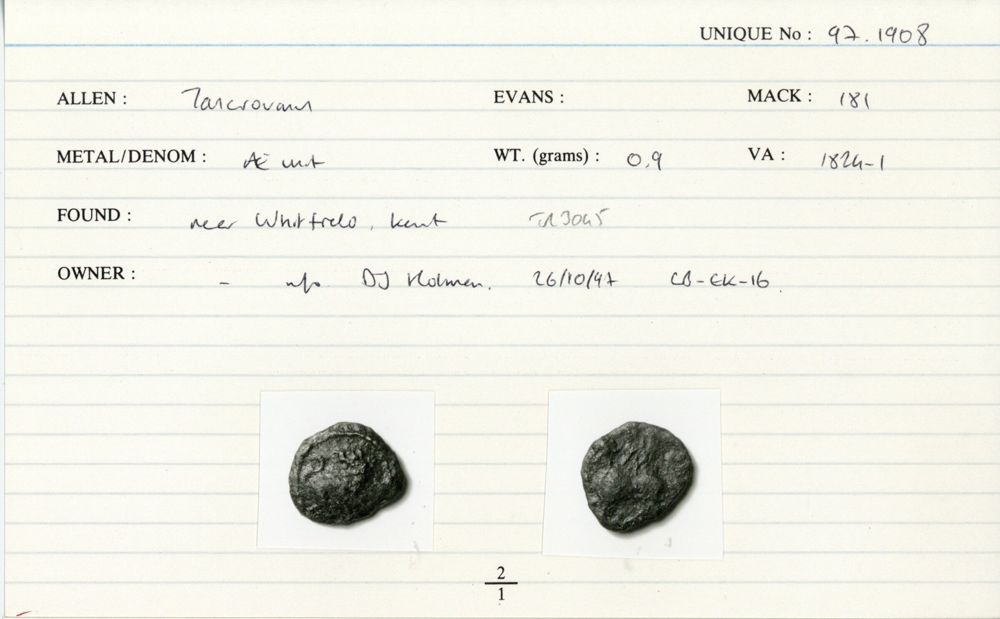 UNIQUE No : 97.1908
ALLEN : Tasciovanus EVANS : MACK : 181
METAL/DENOM : Æ unit WT. (grams) : 0.9 VA : 1824-1
FOUND : near Whitfield, Kent TR3045
OWNER : - DJ Holman. 26/10/97 CB-EK-16
2
1